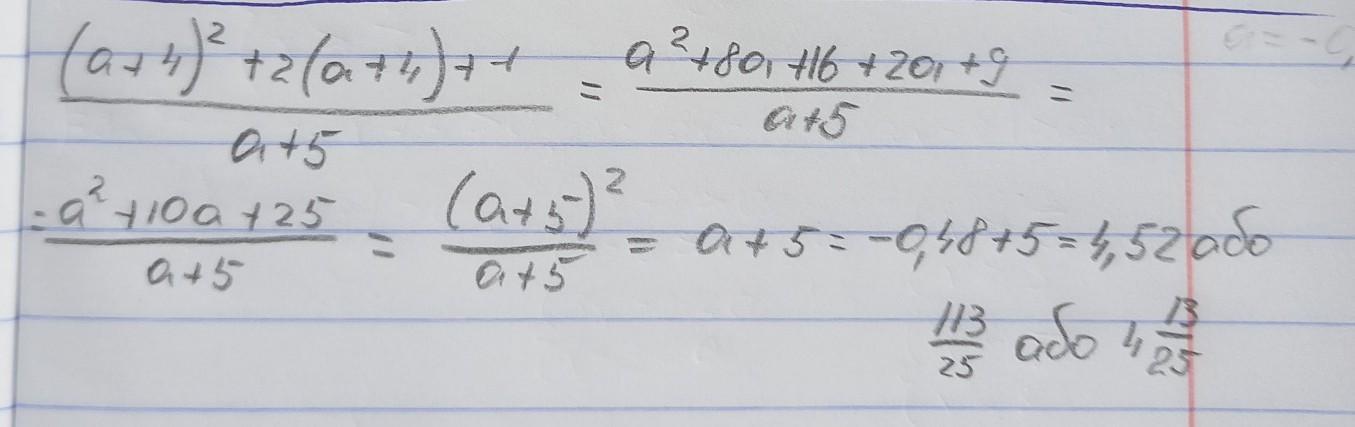 a = -0,
((a+4)² + 2(a+4) + 1)/(a+5) = (a² + 8a + 16 + 2a + 9)/(a+5) =
= (a² + 10a + 25)/(a+5) = (a+5)²/(a+5) = a + 5 = -0,48 + 5 = 4,52 або
113/25 або 4 13/25